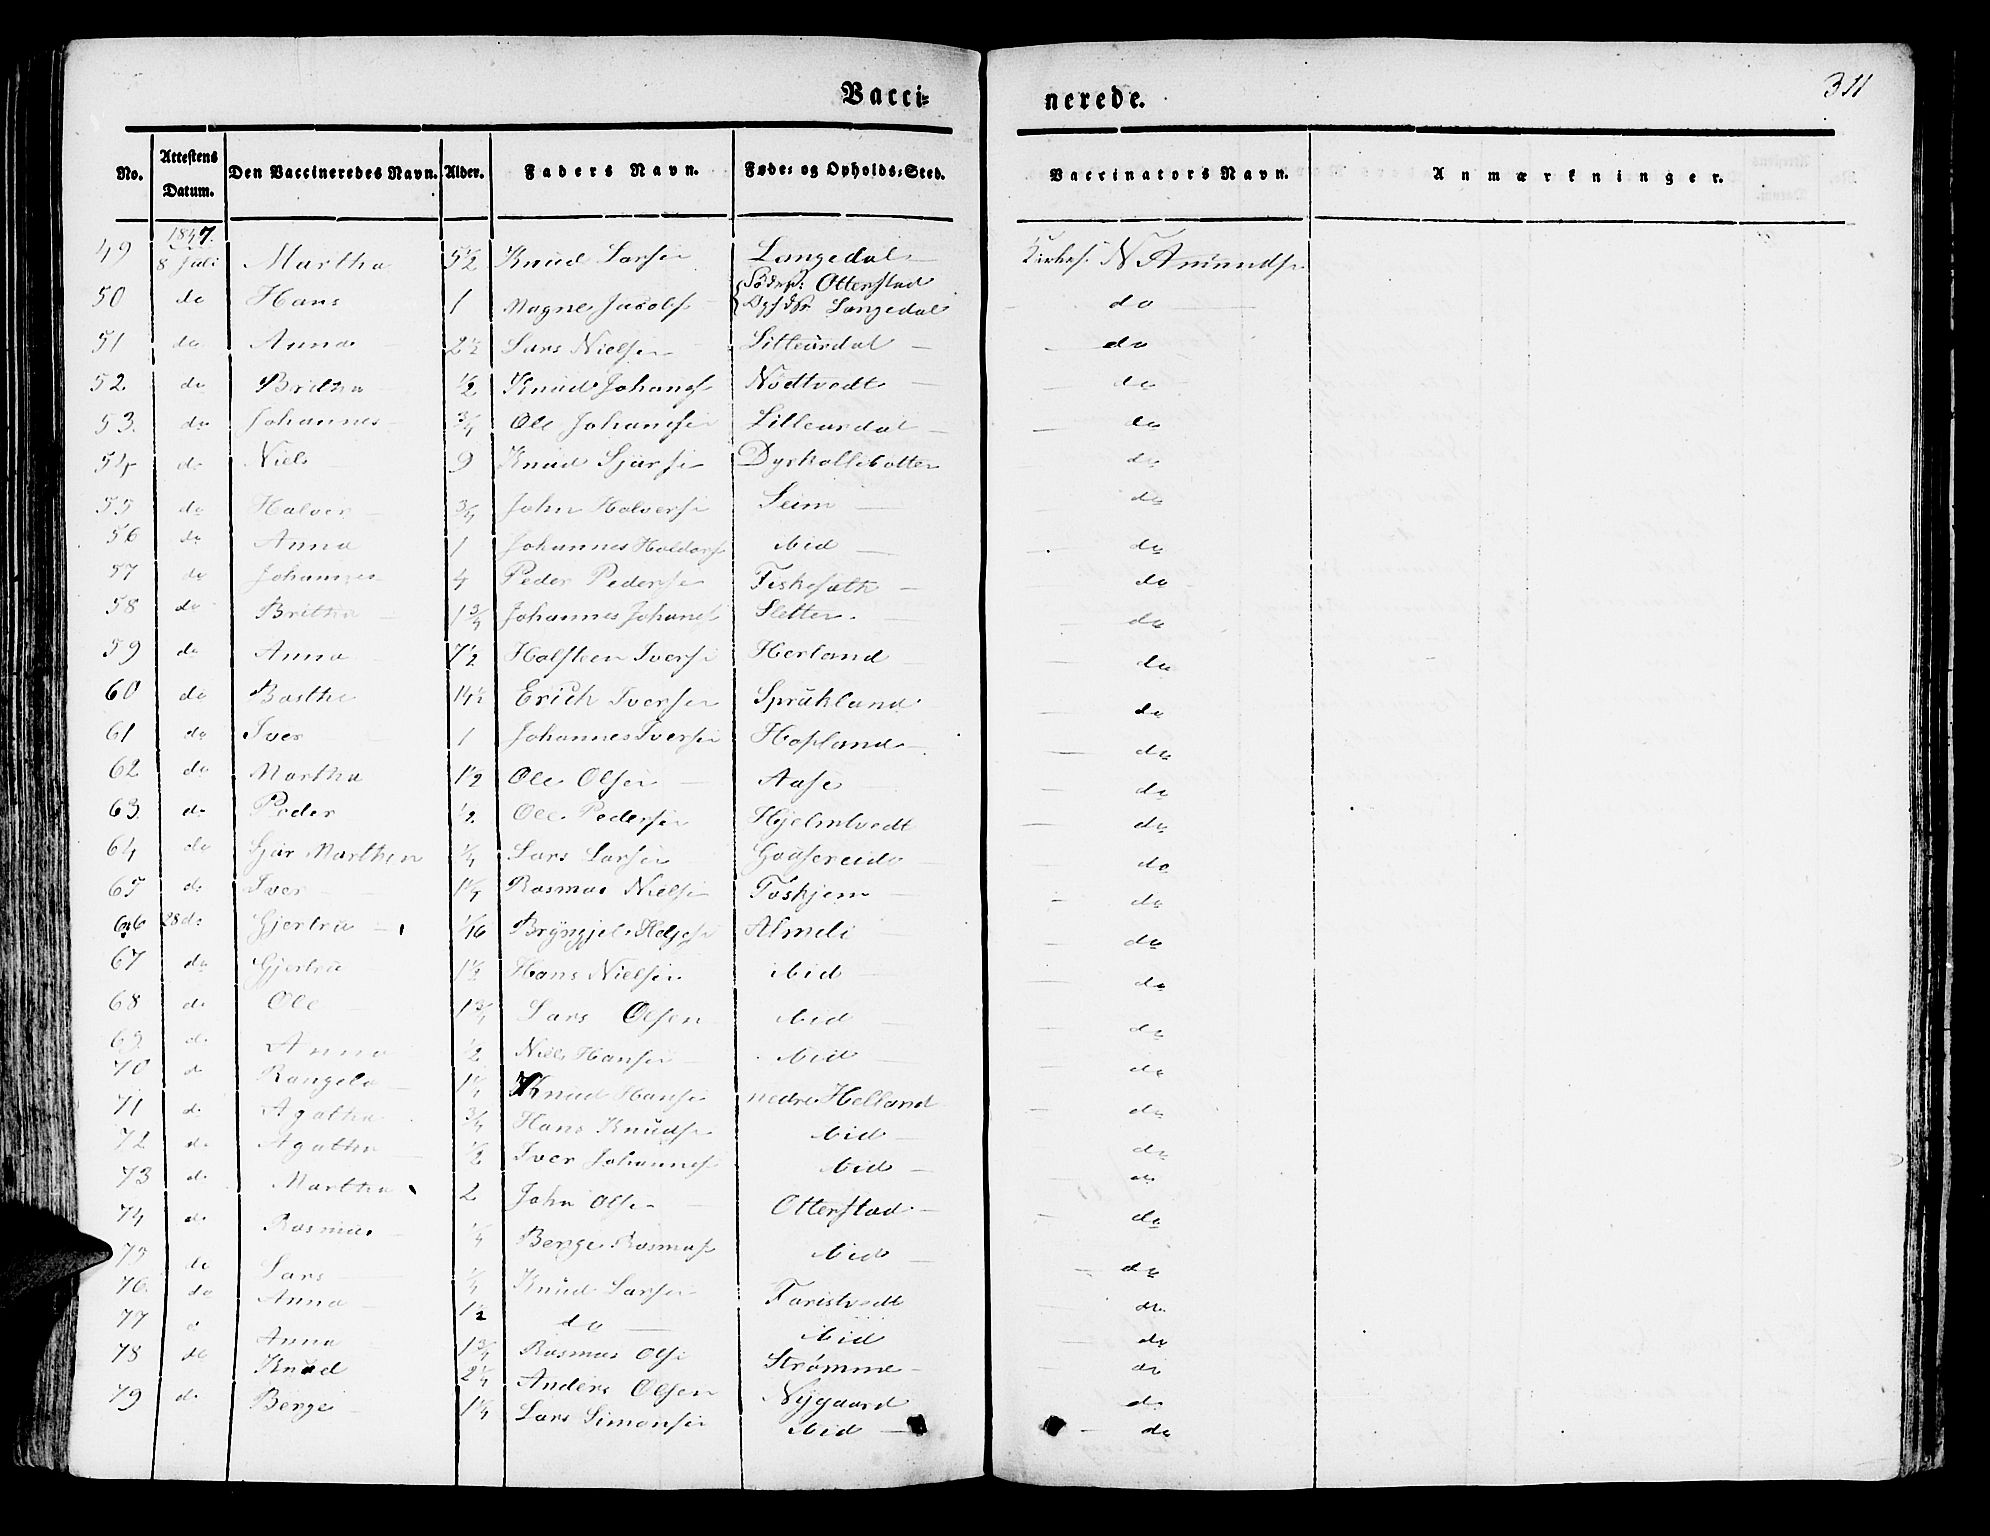 Vacci= nerede. 311
No. Attestens Datum. Den Vaccineredes Navn. Alder. Faders Navn. Føde= og Opholds=Sted. Vaccinators Navn. Anmærkninger.
1847.
49 8 Juli Martha 5½ Knud Larse Langedal Kirkes. N Amundse
50 do Hans 1 Magne Jacobs Födest: Otterstad Langedal do
51 do Anna 2½ Lars Nielsen Lilleurdal do
52. do Britha ½ Knud Johanes Nödtvedt do
53. do Johannes ¾ Ole Johanese Lilleurdal do
54 do Niels 9 Knud Sjurse Dyrkollbotten do
55 do Halver ¾ John Halverse Seim do
56 do Anna 1 Johannes Haldors ibid do
57 do Johannes 4 Peder Pederse Fiskesæth do
58 do Britha 1¾ Johannes Johanes Sletten do
59 do Anna 7½ Holsteen Iverse Herland do
60 do Basthe 14½ Erich Iversen Sprükland do
61 do Iver 1 Johannes Iverse Hopland do
62 do Martha 1½ Ole Olsen Aase do
63. do Peder ½ Ole Pedersen Hjelmtvedt do
64 do Sjur Marthin ¼ Lars Larsen Gaasereide do
65 do Iver 1¼ Rasmus Nielse Toskjem do
66 28 do Gjertru 1/16 Bryngjel Helgese Almeli do
67 do Gjertru 1½ Hans Nielsen ibid do
68 do Ole 1¾ Lars Olsen ibid do
69. do Anna ½ Niels Hanse ibid do
70 do Rangela 1¼ Knud Hanse nedre Helland do
71 do Agatha ¾ Hans Knudse ibid do
72 do Agatha ½ Iver Johannes ibid do
73 do Martha 2 John Olse Otterstad do
74 do Rasmus ¼ Berge Rasmus ibid do
75 do Lars ¼ Knud Larse Faristvedt do
76. do Anna 1½ do ibid do
77 d Anna 1¾ Rasmus Olse Strømme do
78 do Knud 2¼ Anders Olsen Nygaard do
79 do Berge 1¼ Lars Simonsen ibid do